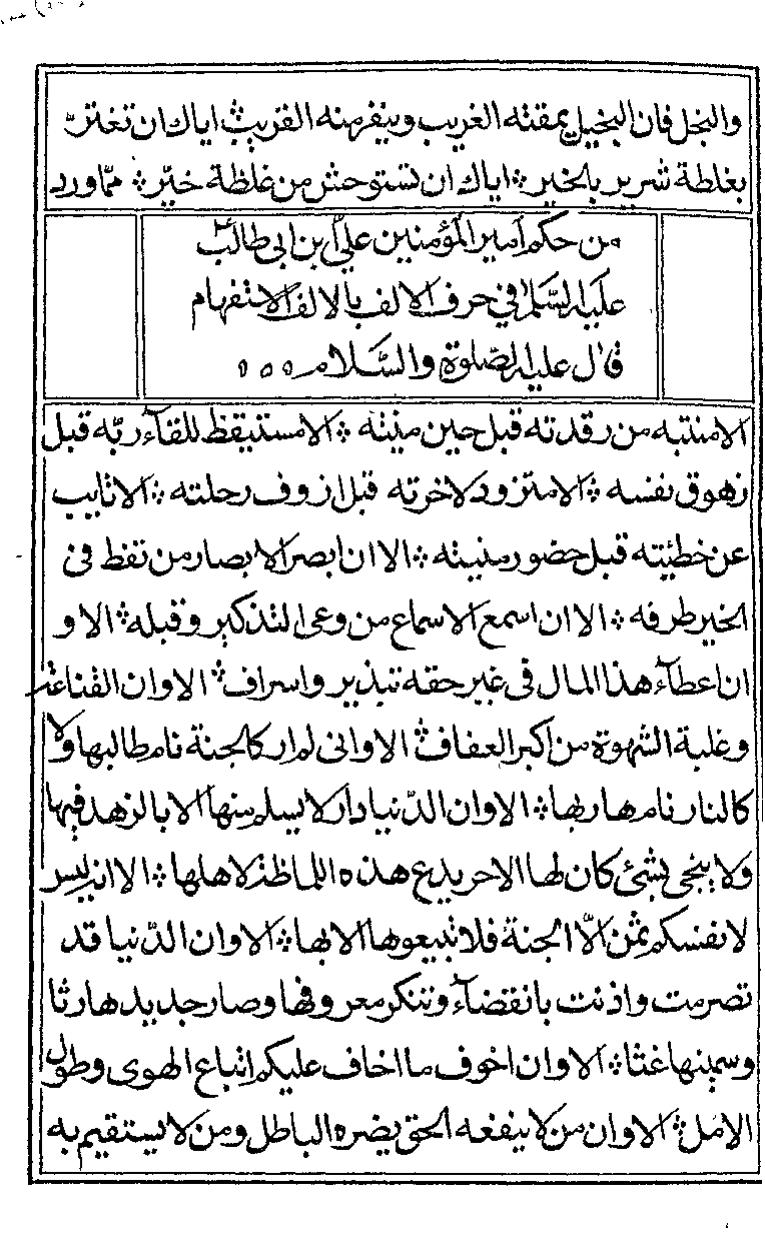 والبخل فان البخيل يمقته الغريب وينفر منه القريب ؞ اياك ان تغترّ
بغلطة شرير بالخير ؞ اياك ان تستوحش من غلظة خيّر ؞ ممّا ورد
من حكم أمير المؤمنين علي بن ابي طالب
عليه السّلام في حرف الالف بالالف الاستفهام
قال عليه الصّلوة والسّلام ه ه ه
الا منتبه من رقدته قبل حين منيته ؞ الا مستيقظ للقآء ربّه قبل
زهوق نفسه ؞ الا متزود لاخرته قبل ازوف رحلته ؞ الا تايب
عن خطيئته قبل حضور منيته ؞ الا ان ابصر الابصار من نفظ في
الخير طرفه ؞ الا ان اسمع الاسماع من وعى التذكير وقبله ؞ الا و
ان اعطآء هذا المال في غير حقه تبذير واسراف ؞ الا وان القناعة
وغلبة الشهوة من اكبر العفاف ؞ الا واني لم ار كالجنة نام طالبها ولا
كالنار نام هاربها ؞ الا وان الدّنيا دار لا يسلم منها الا بالزهد فيها
ولا ينجى بشئ كان لها الا حر يدع هذه اللماظة لاهلها ؞ الا انه ليس
لانفسكم ثمن الّا الجنة فلا تبيعوها الا بها ؞ الا وان الدّنيا قد
تصرمت واذنت بانقضآء وتنكر معروفها وصار جديدها رثا
وسمينها غثا ؞ الا وان اخوف ما اخاف عليكم اتباع الهوى وطول
الامل ؞ الا وان من لا ينفعه الحق يضره الباطل ومن لا يستقيم به